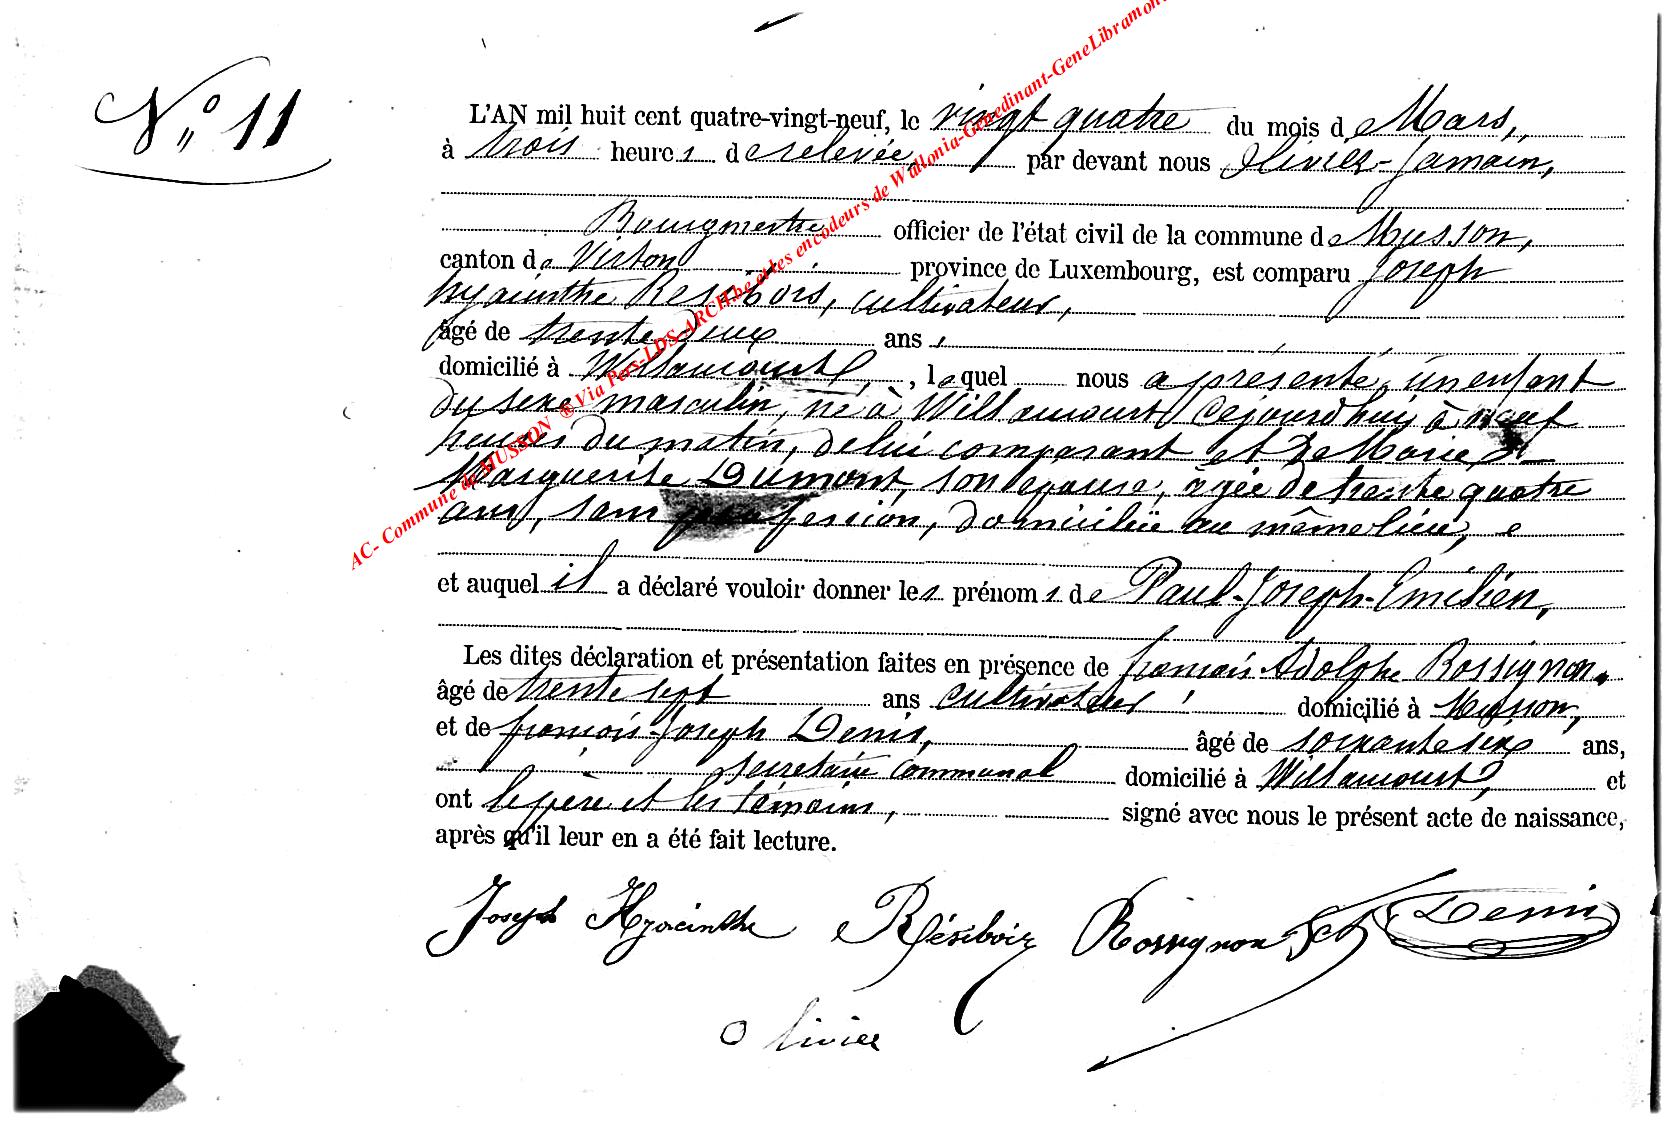 N° 11
L'AN mil huit cent quatre-vingt-neuf, le vingt quatre du mois de Mars,
à trois heures de relevée, par devant nous Olivier Jamain,
Bourgmestre officier de l'état civil de la commune de Musson,
canton de Virton province de Luxembourg, est comparu Joseph
hyacinthe Resibois, cultivateur,
âgé de trente deux ans,
domicilié à Willancourt, lequel nous a présenté, un enfant
du sexe masculin, né à Willancourt cejourd'hui à neuf
heures du matin, de lui comparant et de Marie
Marguerite Dumont, son épouse, agée de trente quatre
ans, sans profession, domiciliée au même lieu, e
et auquel il a déclaré vouloir donner les prénoms de Paul-Joseph-Emilien,
Les dites déclaration et présentation faites en présence de françois Adolphe Rossignon
âgé de trente sept ans cultivateur domicilié à Musson,
et de françois-Joseph Denis, âgé de soixante six ans,
secretaire communal domicilié à Willancourt, et
ont le père et les témoins, signé avec nous le présent acte de naissance,
après qu'il leur en a été fait lecture.
Joseph Hyacinthe Résibois Rossignon Denis
Olivier
AC- Commune de MUSSON ®Via Pers-LDS-ARCH.be et les encodeurs de Wallonia-Genedinant-GeneLibramont